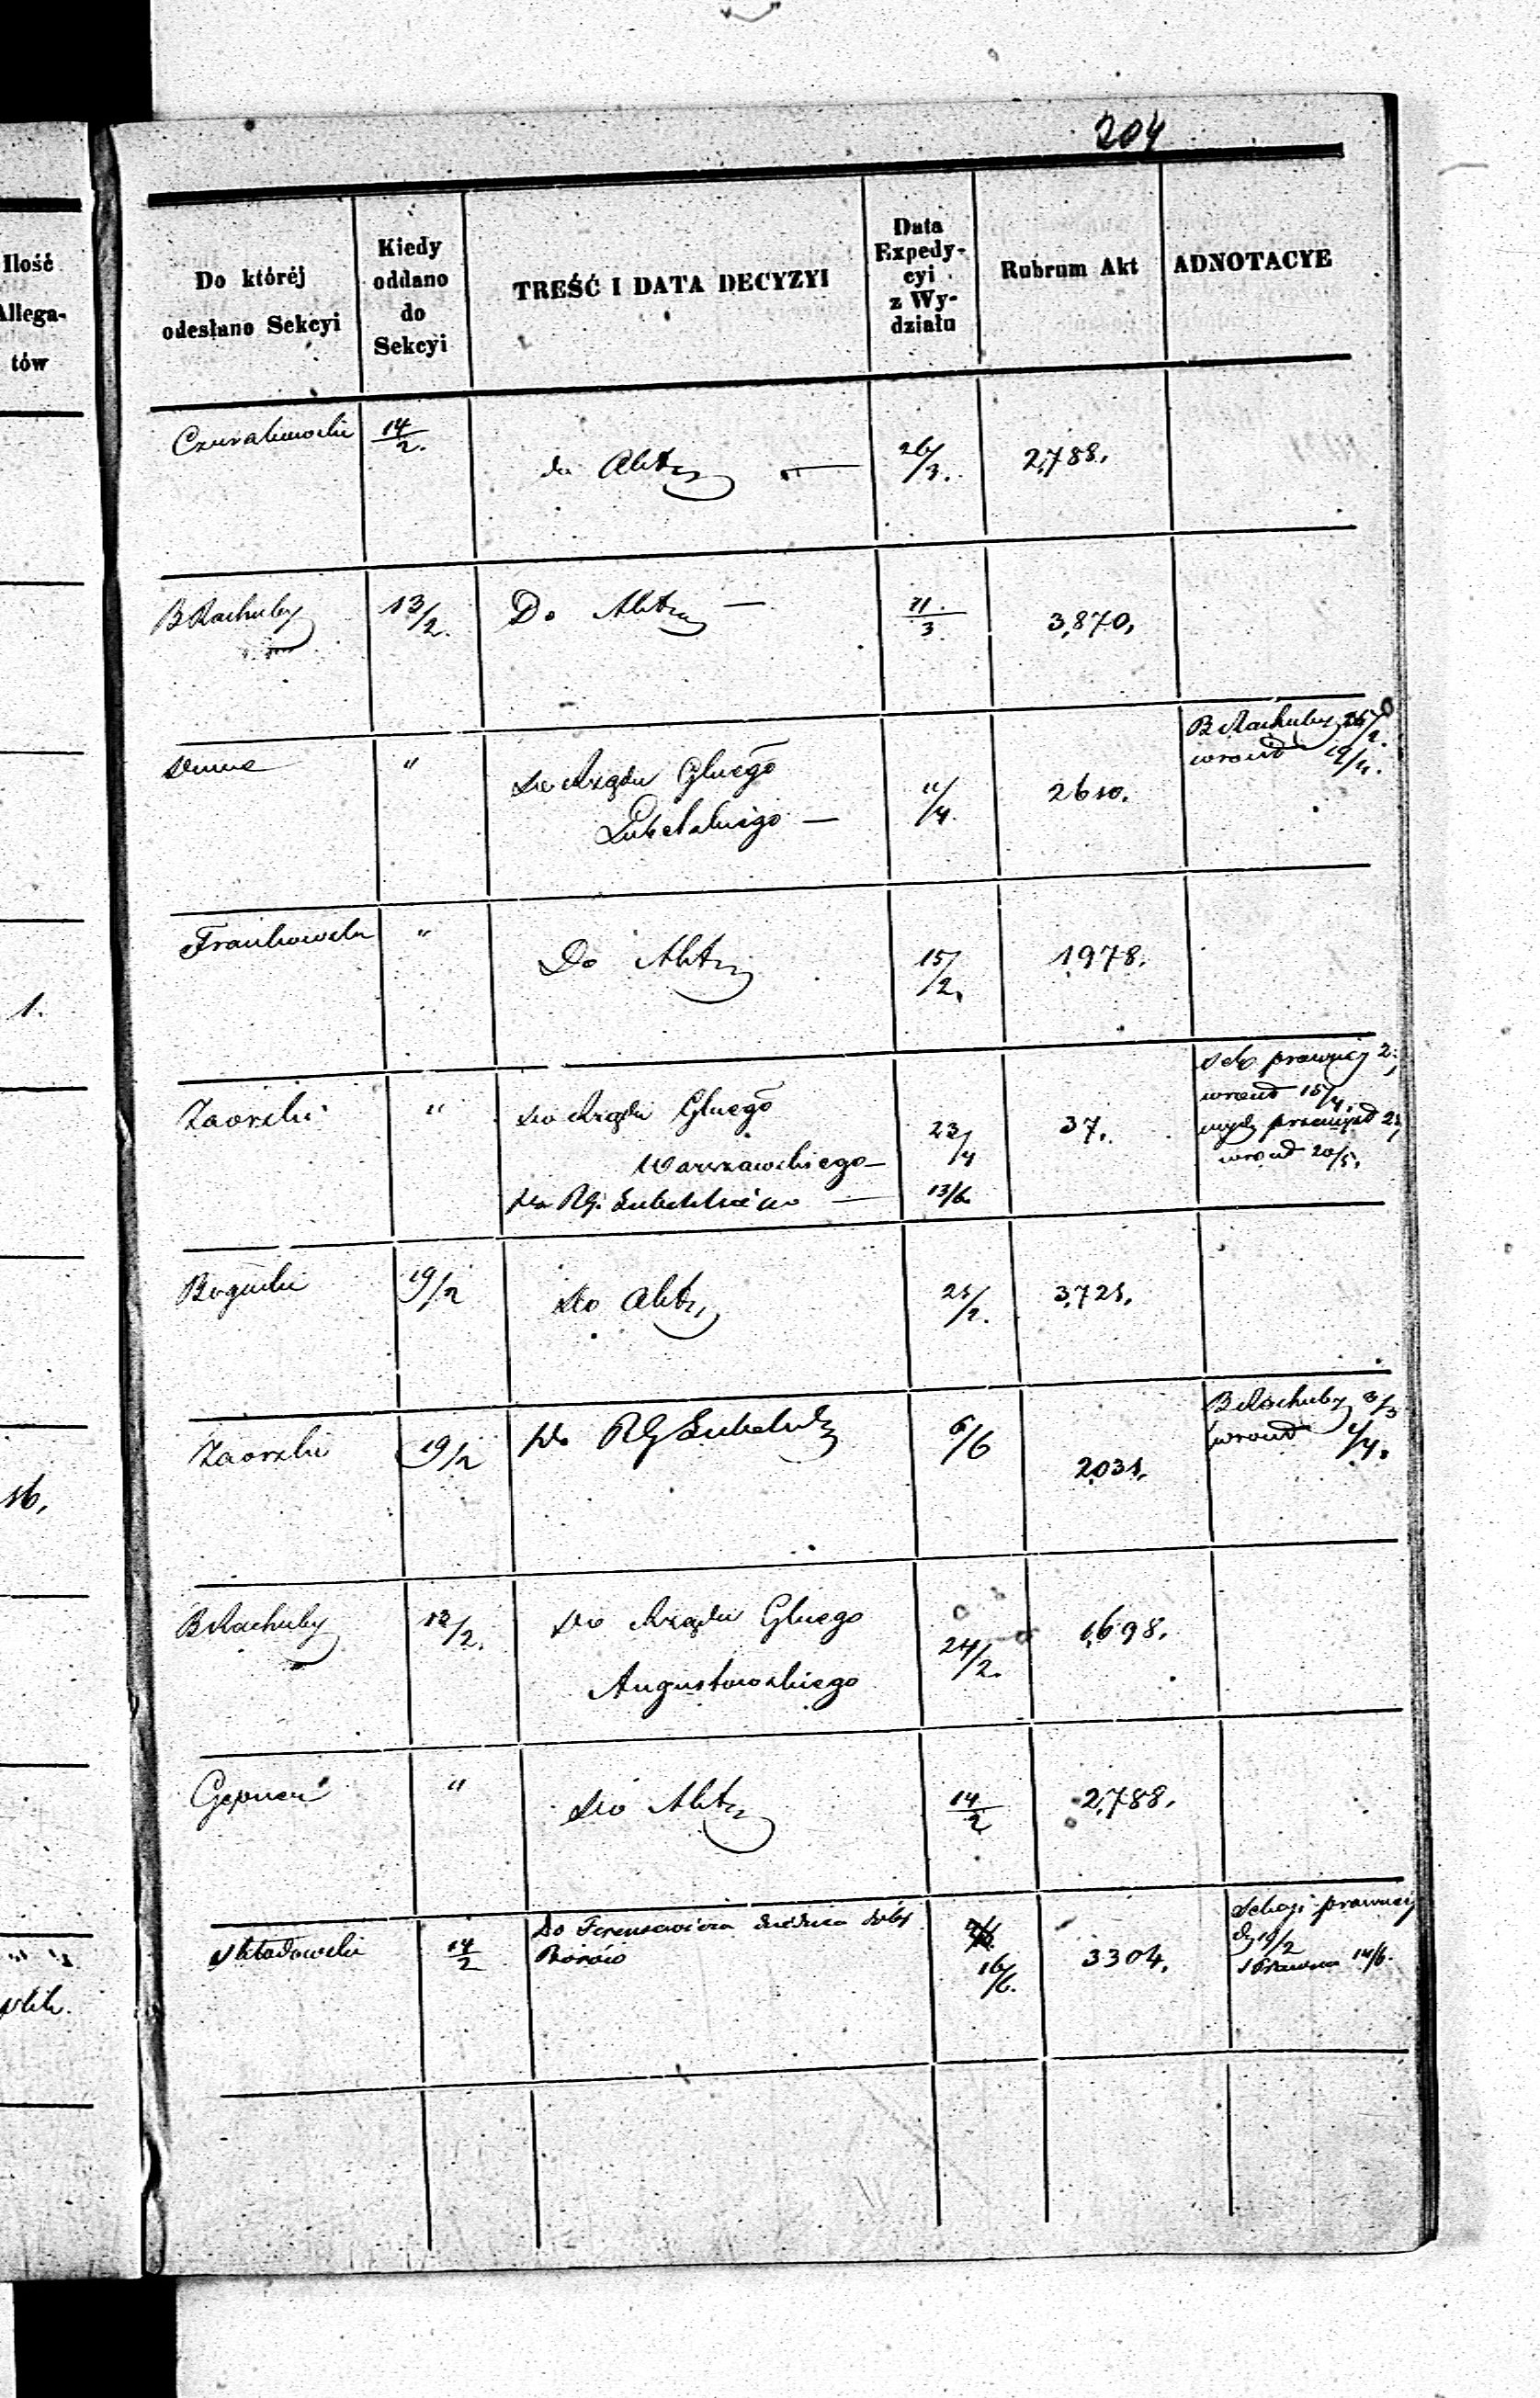 204
Ilość
Allega-
tów
Do któréj
odesłano Sekcyi
Kiedy
oddano
do
Sekcyi
TREŚĆ I DATA DECYZYI
Data
Expedy-
cyi
z Wy-
działu
Rubrum Akt
ADNOTACYE
14/2.
do Akt
26/3.
2,788.
B Rachuby
13/2.
Do Akt —
11./3
3,870,
"
Do Rządu Głnego
Lubelskiego —
11/4.
2610.
B Rachuby
wrócił 19/4.
1.
Frankowski
"
Do Akt
15/2.
1978.
Zaorski
"
Do Rządu Głnego
Warszawskiego —
Do RG. Lubelskiego —
23/4
13/6.
37.
prawnej
wrócił 15/4.
wrócił 20/5.
Bogucki
19/2
Do Akt
25/2.
3,721.
16,
Zaorski
19/2
Do RG Lubelsk
6/6
2031.
B Rachuby 3/3
wrócił 1/4.
B Rachuby
13/2.
Do Rządu Głnego
Augustowskiego
24/2.
1,698.
Gepner
"
Do Akt
14/2
2,788.
Skłodowski
14/2
Do
Borów
16/6.
3304.
Sekcyi prawnej
19/2
14/6.